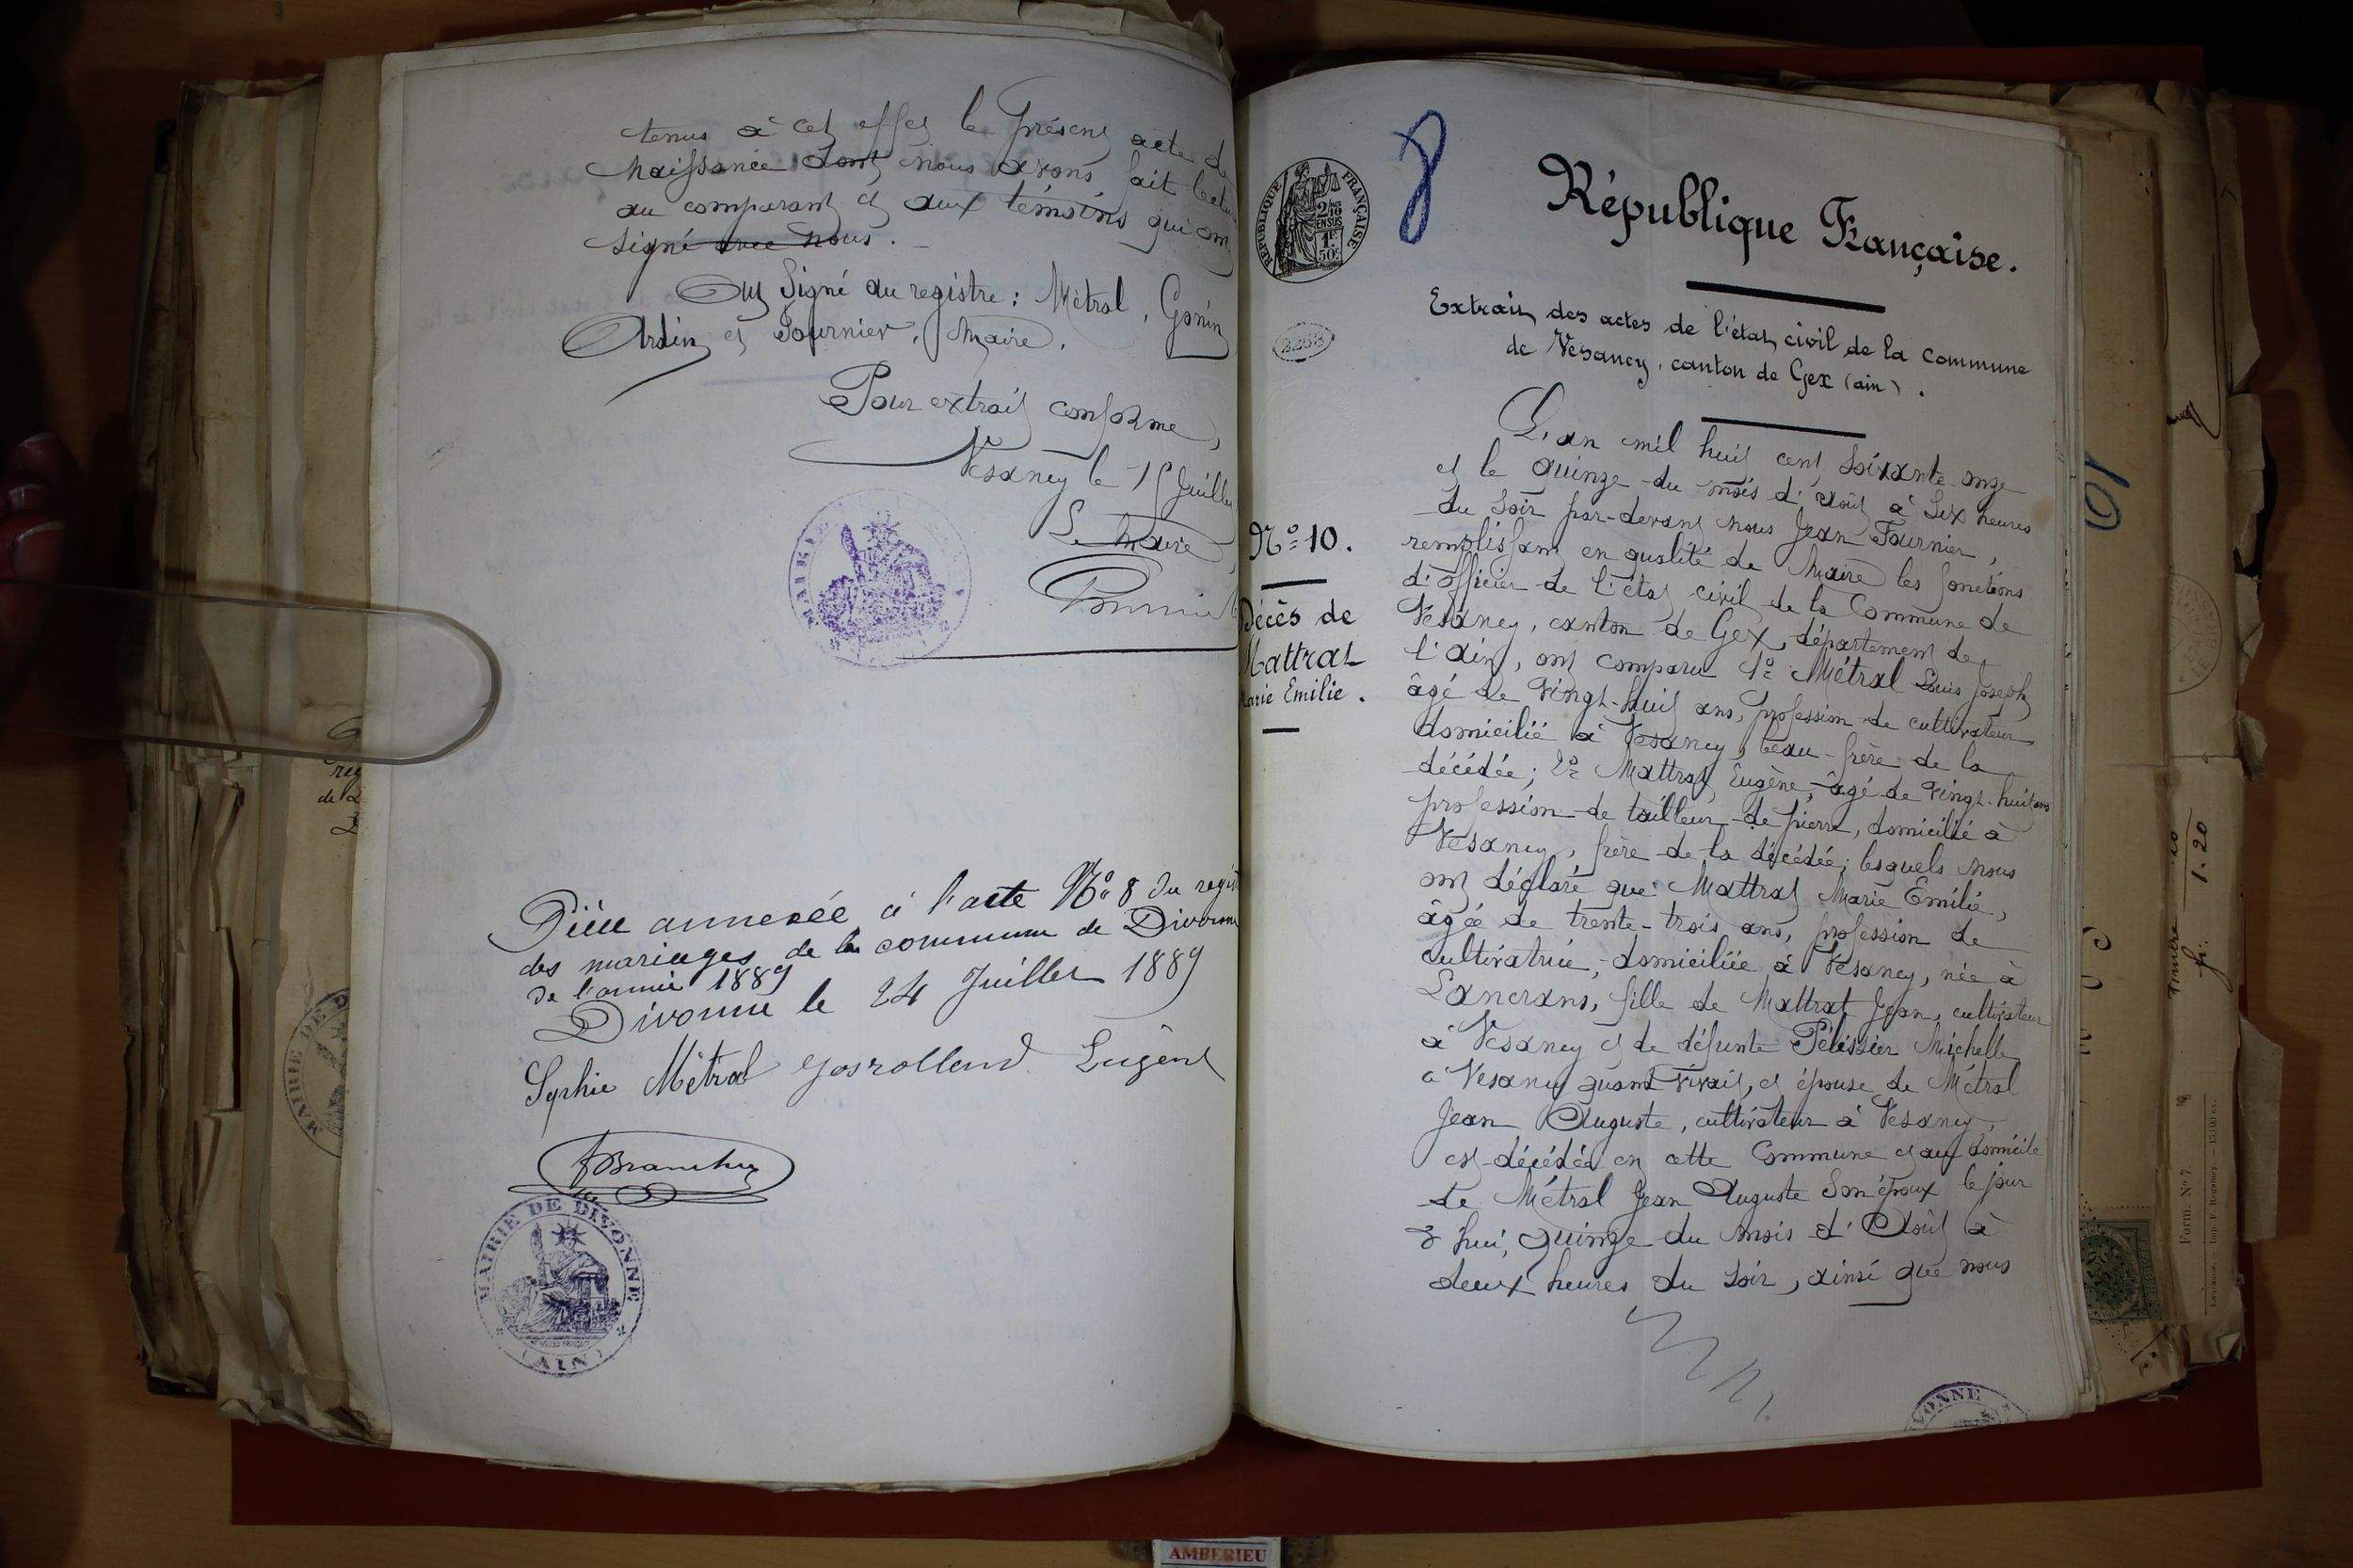 tenus à cet effet le présent acte de
Naissance dont nous avons fait lectu
au comparant et aux témoins qui ont
signé avec nous. –
Ont signé au registre : Métral, Gonin
Ardin et Fournier, Maire.
Pour extrait conforme,
Vesancy le 15 Juillet
Le Maire
MAIRIE
Pièce annexée à l'acte No 8 du regis
des mariages de la commune de Divonne
de l'année 1889
Divonne le 24 Juillet 1889
Sophie Métral Eugène
MAIRIE DE DIVONNE
(AIN)
RÉPUBLIQUE FRANÇAISE
2/10 EN SUS
1F
50c
8
République Française.
Extrait des actes de l'état civil de la commune
de Vesancy, canton de Gex (ain).
No 10.
Décès de
Mattrat
Marie Emilie.
L'an mil huit cent soixante-onze
et le quinze du mois d'août à six heures
du soir par-devant nous Jean Fournier,
remplissant en qualité de Maire les fonctions
d'officier de l'état civil de la Commune de
Vesancy, canton de Gex, département de
l'ain, ont comparu 1o Métral Louis Joseph
âgé de vingt-huit ans, profession de cultivateur
domicilié à Vesancy, beau-frère de la
décédée; 2o Mattrat Eugène, âgé de vingt-huit ans
profession de tailleur de pierre, domicilié à
Vesancy, frère de la décédée; lesquels nous
ont déclaré que Mattrat Marie Emilie,
âgée de trente-trois ans, profession de
cultivatrice, domiciliée à Vesancy, née à
Lancrans, fille de Mattrat Jean, cultivateur
à Vesancy et de défunte Pélissier Michelle
à Vesancy quand vivait, et épouse de Métral
Jean Auguste, cultivateur à Vesancy,
est décédée en cette Commune et au domicile
de Métral Jean Auguste son époux le jour
d'hui, quinze du mois d'Août à
deux heures du soir, ainsi que nous
VONNE
10
1.20
Form. No 7.
MAIRIE DE D
AMBERIEU